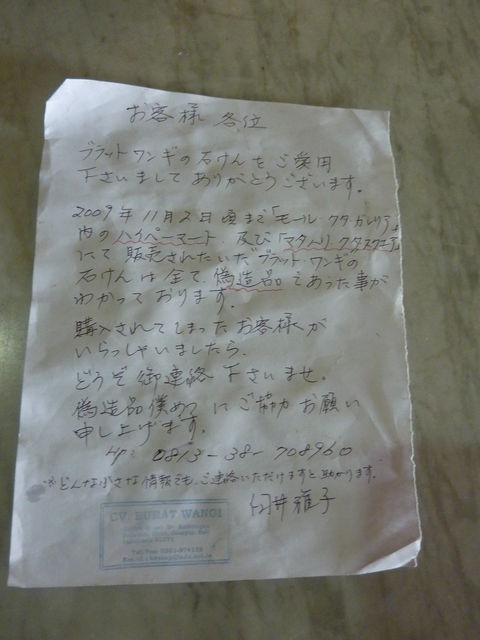 お客様 各位
ブラットワンギの石けんをご愛用
下さいまして ありがとうございます。
2009年11月2日頃まで「モール クタガレリア」
内のハイパーマート 及び「マタハリ クタスクエア」
にて 販売されたいだブラット・ワンギの
石けんは全て 偽造品であった事が
わかっております。
購入されてしまったお客様が
いらっしゃいましたら、
どうぞ御連絡下さいませ。
偽造品僕めつにご協力お願い
申し上げます。
HP: 0813-38-708960
※どんな小さな情報でも、ご連絡いただけますと助かります。
雅子
CV. BURAT WANGI